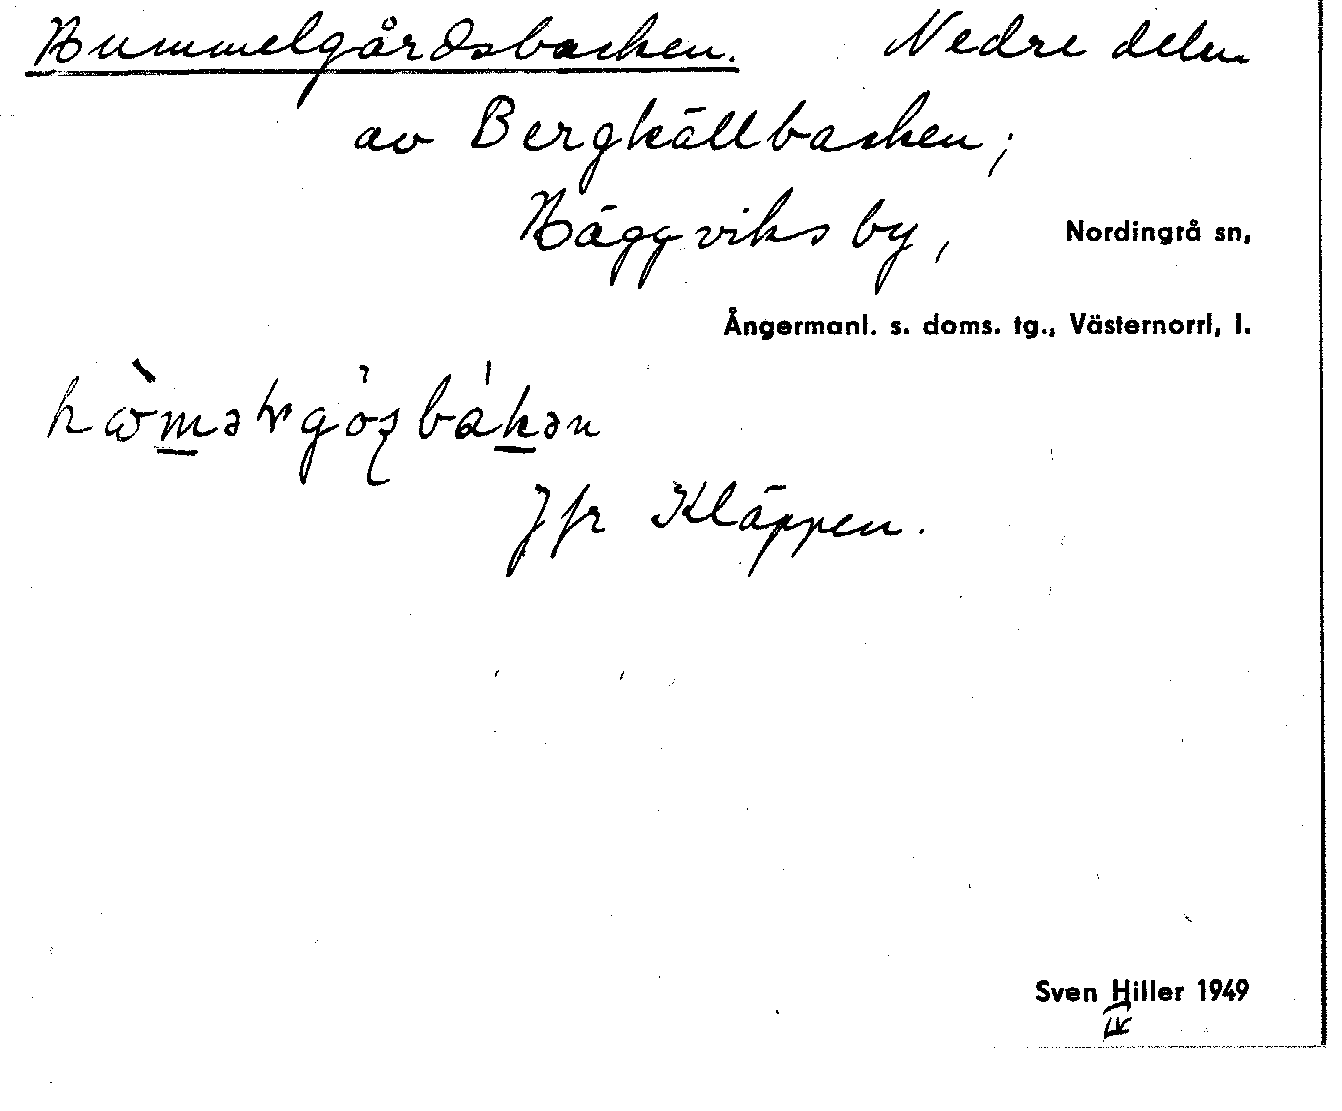 Hummelgårdsbacken. Nedre delen
av Bergkällbacken;
Häggviks by, Nordingrå sn,
Ångermanl. s. doms. tg., Västernorrl. l.
Jfr Kläppen.
Sven Hiller 1949